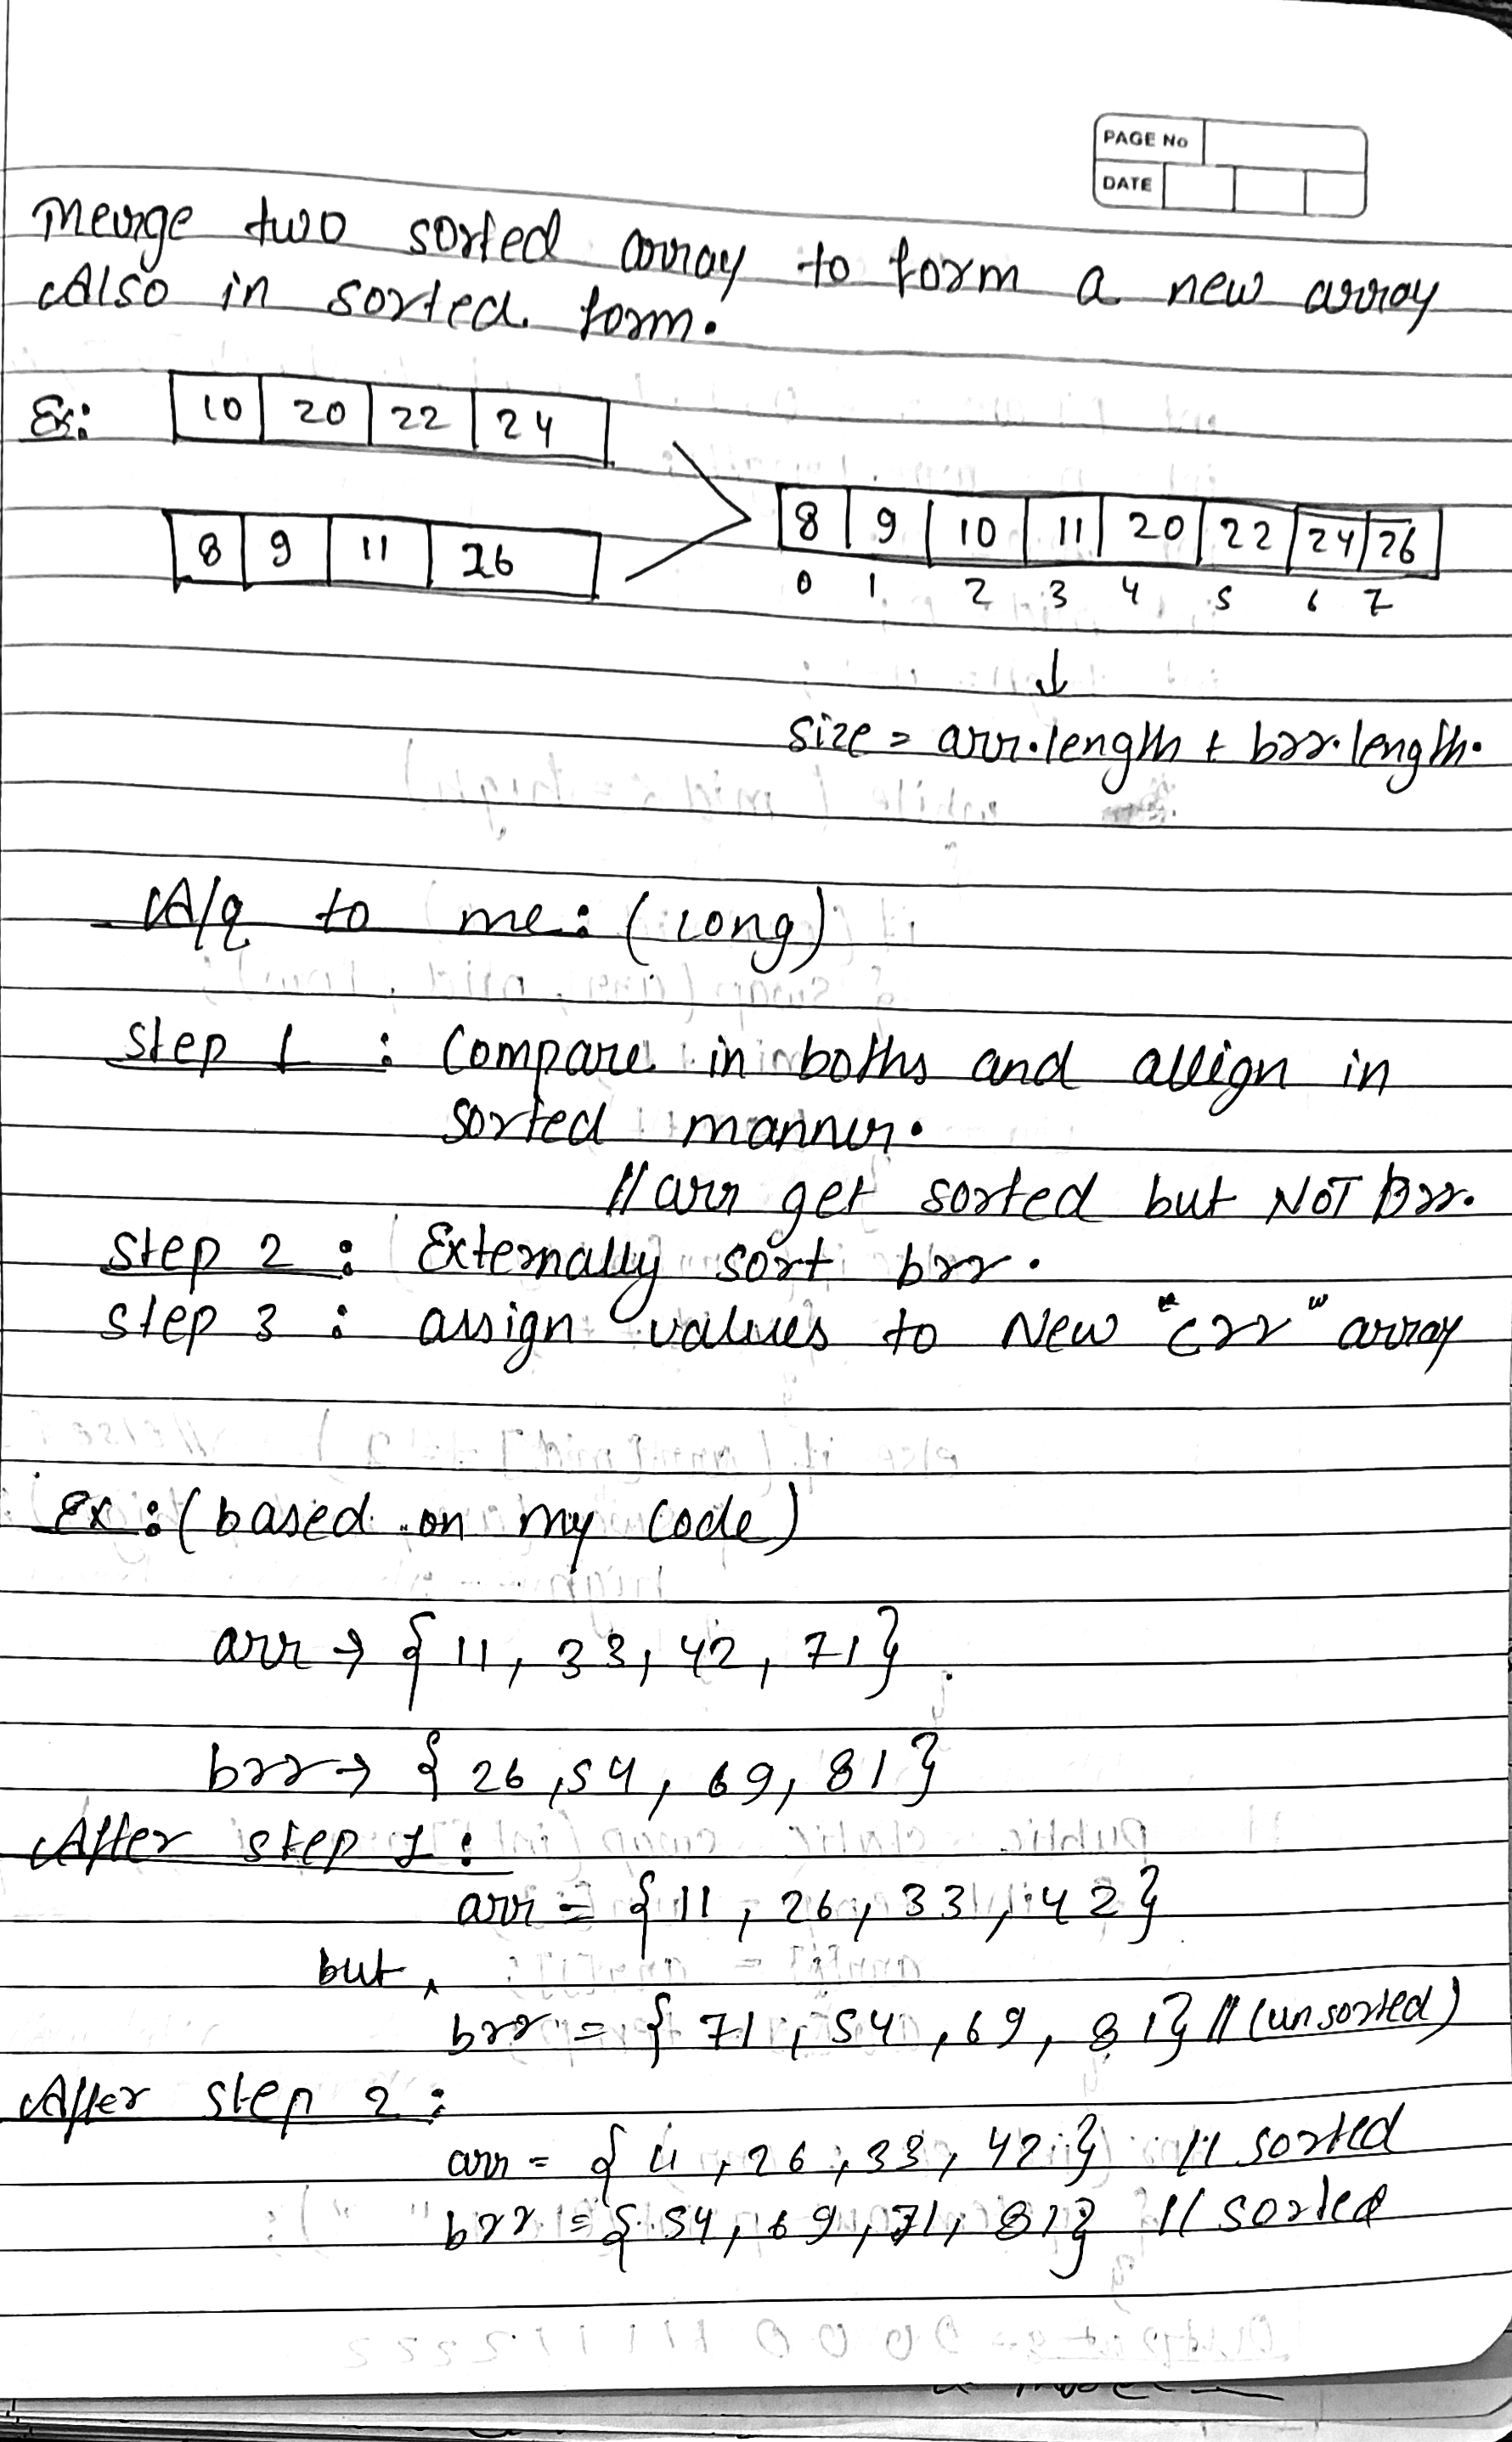 PAGE No
DATE
Merge two sorted array to form a new array
Also in sorted form.
Ex:
10 20 22 24
8 9 11 26
8 9 10 11 20 22 24 26
0 1 2 3 4 5 6 7
↓
size = arr.length + brr.length.
A/q to me: (long)
step 1 : Compare in boths and allign in
sorted manner.
// arr get sorted but NOT Brr.
step 2 : Externally sort brr.
step 3 : assign values to New "crr" array
ex : (based on my code)
arr → { 11, 33, 42, 71 }
brr → { 26, 54, 69, 81 }
After step 1 :
arr = { 11, 26, 33, 42 }
but,
brr = { 71, 54, 69, 81 } // (unsorted)
After step 2 :
arr = { 11, 26, 33, 42 } // sorted
brr = { 54, 69, 71, 81 } // sorted